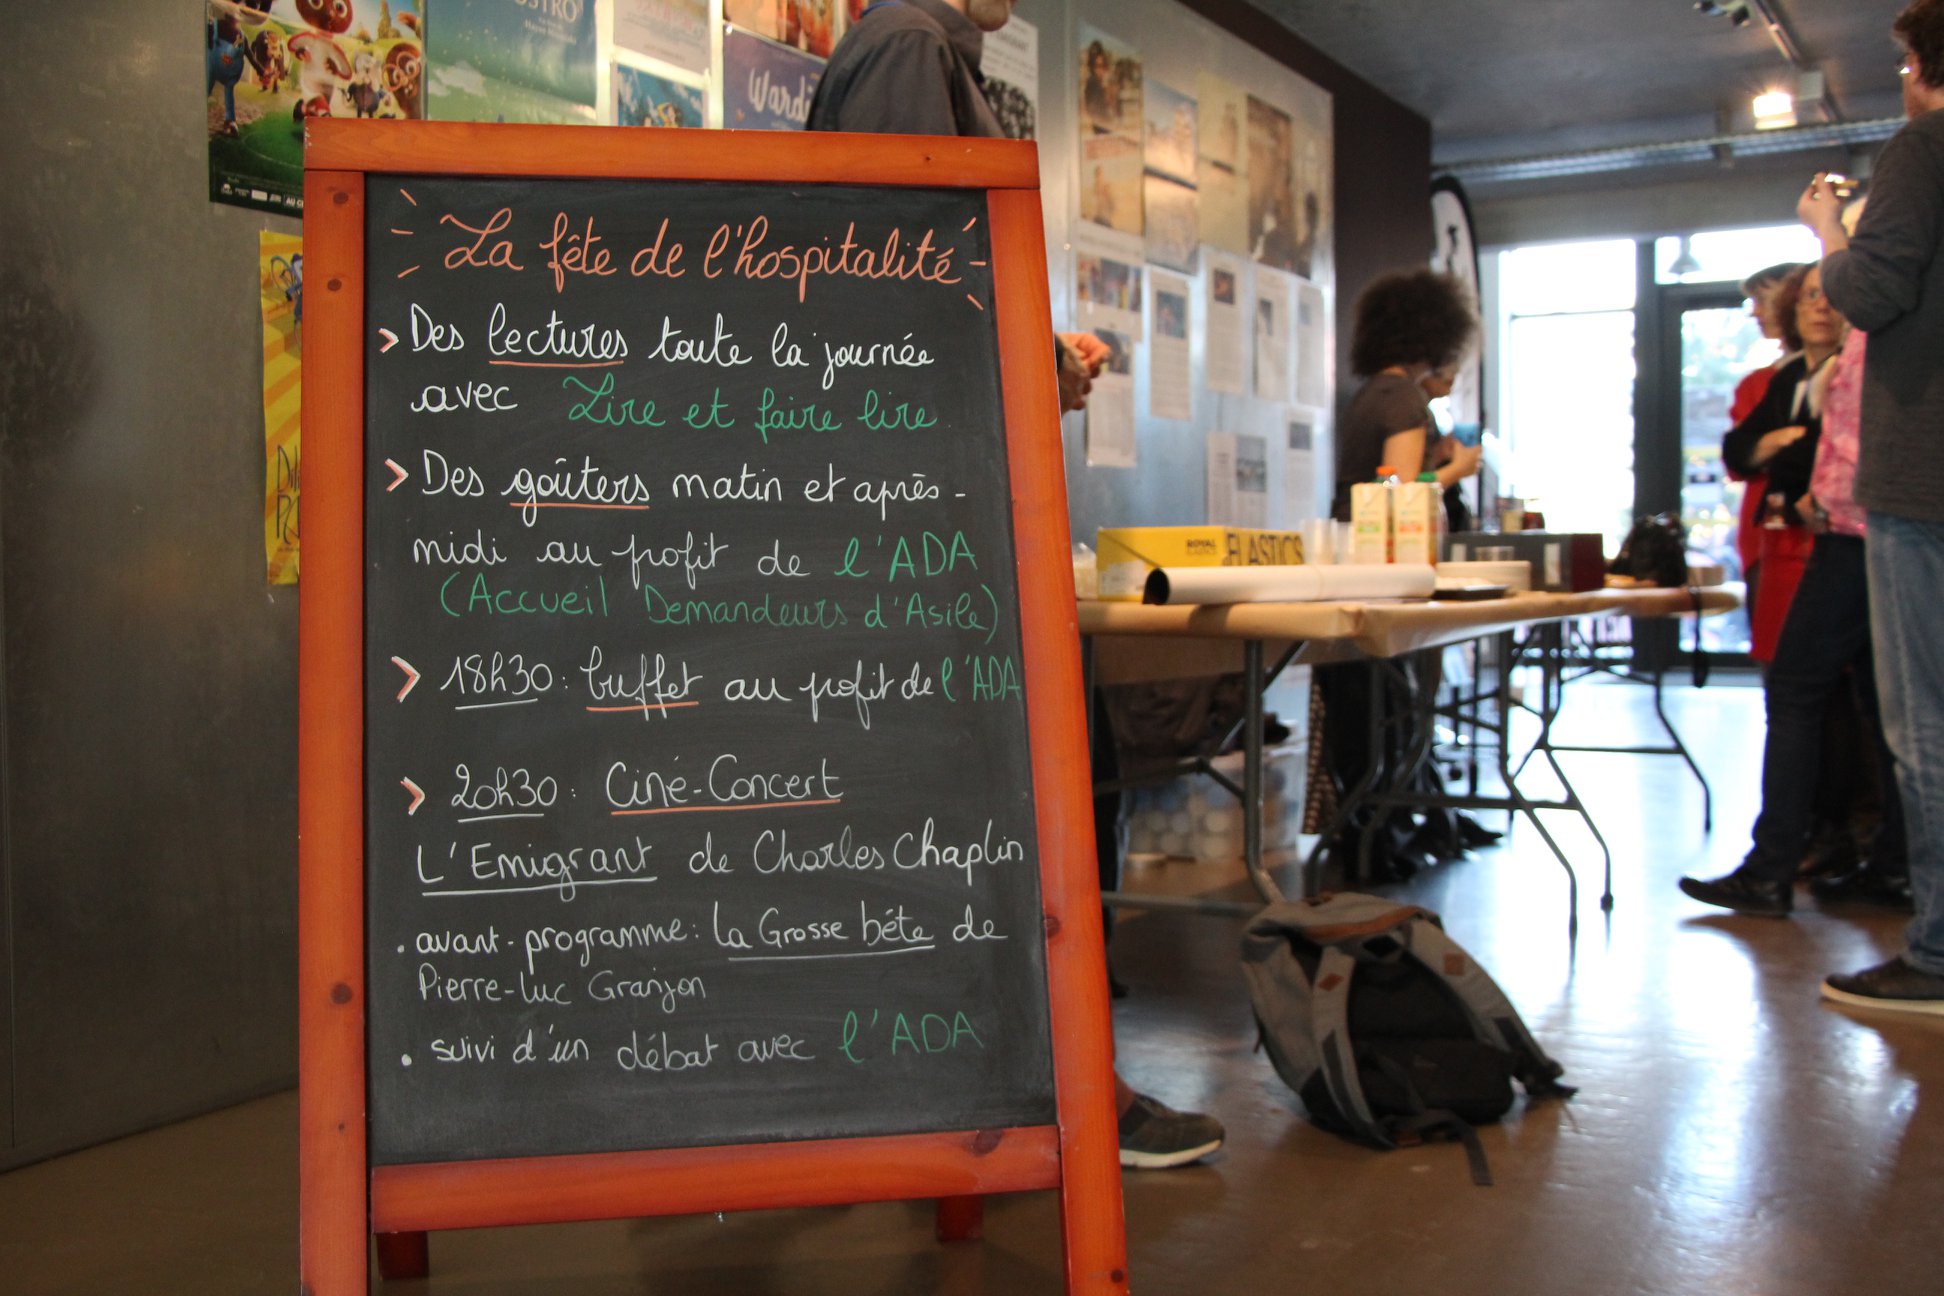 OSTRO
Wardi
AU CI
La fête de l'hospitalité
> Des lectures toute la journée
avec Lire et faire lire
> Des goûters matin et après-
midi au profit de l'ADA
(Accueil Demandeurs d'Asile)
> 18h30 : buffet au profit de l'ADA
> 20h30 : Ciné-Concert
L'Emigrant de Charles Chaplin
. avant-programme : la Grosse bête de
Pierre-Luc Granjon
. suivi d'un débat avec l'ADA
ROYAL
ELASTICS